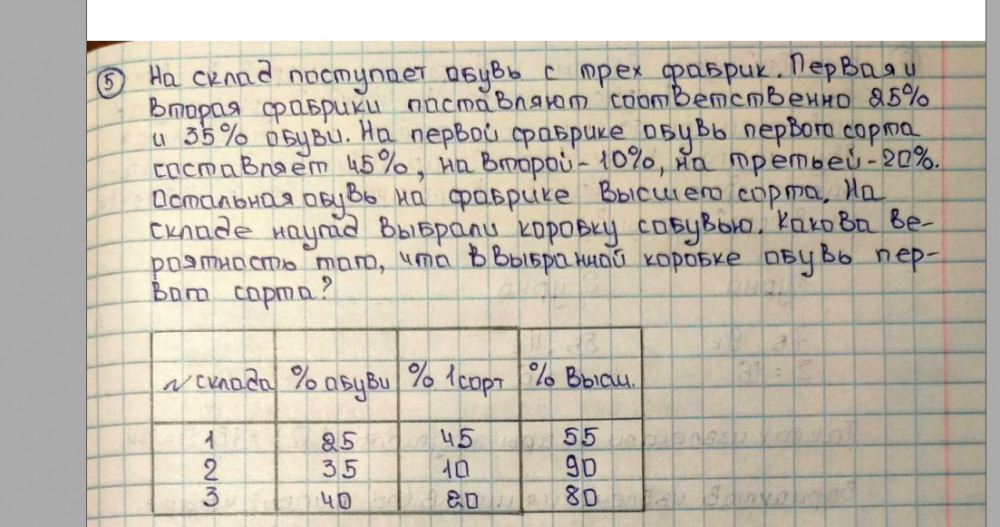 5 На склад поступает обувь с трех фабрик. Первая и
вторая фабрики поставляют соответственно 25%
и 35% обуви. На первой фабрике обувь первого сорта
составляет 45%, на второй - 10%, на третьей - 20%.
Остальная обувь на фабрике высшего сорта. На
складе наугад выбрали коробку с обувью. Какова ве-
роятность того, что в выбранной коробке обувь пер-
вого сорта?
№ склада % обуви % 1 сорт % высш.
1 25 45 55
2 35 10 90
3 40 20 80